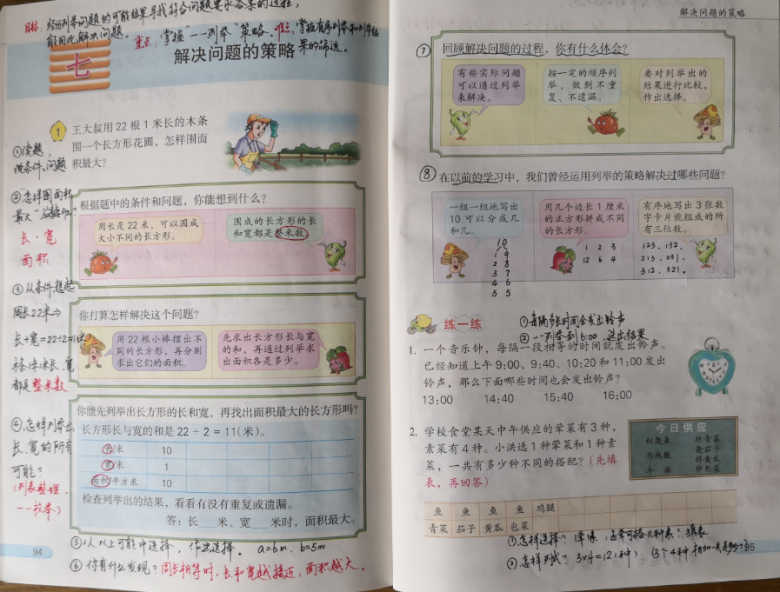 目标:经历列举问题的可能结果寻找符合问题要求答案的过程,
能用此解决问题。重点:掌握一一列举“策略。难点:掌握有序列举和列举结果的筛选。
七
解决问题的策略
1
王大叔用22根1米长的木条
围一个长方形花圃,怎样围面
积最大?
①读题,
找条件、问题
②怎样围面积
最大
长·宽
面积
根据题中的条件和问题,你能想到什么?
周长是22米,可以围成
大小不同的长方形。
围成的长方形的长
和宽都是整米数。
③从条件想起
周长22米⇒
长+宽=22÷2=11米
长、宽
都是整米数
你打算怎样解决这个问题?
用22根小棒摆出不
同的长方形,再分别
求出它们的面积。
先求出长方形长与宽
的和,再通过列举求
出面积各是多少。
④怎样列举出
长、宽的所有
可能?
(列表整理,
一一枚举)
你能先列举出长方形的长和宽,再找出面积最大的长方形吗?
长方形长与宽的和是22÷2=11(米)。
长/米 10
宽/米 1
面积/平方米 10
检查列举出的结果,看看有没有重复或遗漏。
答:长 米、宽 米时,面积最大。
⑤从以上可能中选择,作出选择。a=6m b=5m
⑥你有什么发现?周长相等时,长和宽越接近,面积越大。
94
解决问题的策略
⑦
回顾解决问题的过程,你有什么体会?
有些实际问题
可以通过列举
来解决。
按一定的顺序列
举,做到不重
复、不遗漏。
要对列举出的
结果进行比较,
作出选择。
⑧
在以前的学习中,我们曾经运用列举的策略解决过哪些问题?
一组一组地写出
10可以分成几
和几。
用几个边长1厘米
的正方形拼成不同
的长方形。
有序地写出3张数
字卡片能组成的所
有三位数。
10
1 9
2 8
3 7
4 6
5 5
1 2 3
12 6 4
123、132、
213、231、
312、321。
练一练
①每隔多长时间会发出铃声
②一一列举到16:00,选出结果
1. 一个音乐钟,每隔一段相等的时间就发出铃声。
已经知道上午9:00、9:40、10:20和11:00发出
铃声,那么下面哪些时间也会发出铃声?
13:00 14:40 15:40 16:00
2. 学校食堂某天中午供应的荤菜有3种,
素菜有4种。小洪选1种荤菜和1种素
菜,一共有多少种不同的搭配?(先填
表,再回答)
今日供应
炒青菜
鱼 鱼 鱼 鱼 鸡腿
青菜 茄子 黄瓜 包菜
①怎样选择? 填表
②怎样列式? 3×4=12(种)